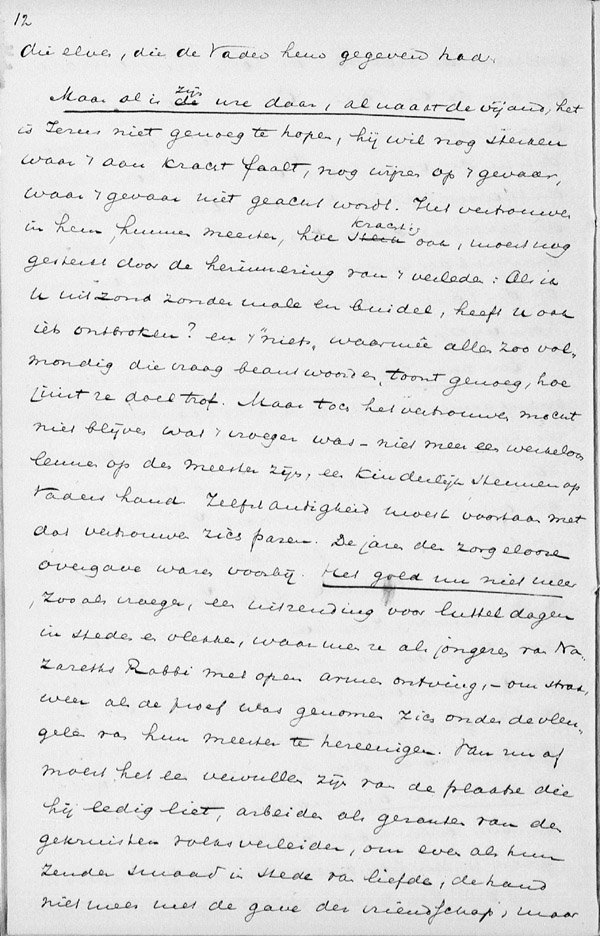 12
die elven, die de Vader hem gegeven had.
Maar al is zijn de ure daar, al naast de vijand, het
is Jezus niet genoeg te hopen, hij wil nog sterken
waar 't aan kracht faalt, nog wijzen op 't gevaar,
waar 't gevaar niet geacht wordt. Het vertrouwen
in hem, hunnen meester, hoe sterk krachtig ook, moest nog
gesterkt door de herinnering van 't verleden: Als ik
U uitzond zonder male en buidel, heeft U ook
iets ontbroken? en 't "niets", waarmêe allen zoo vol-
mondig die vraag beantwoordden, toont genoeg, hoe
juist ze doel trof. Maar toch het vertrouwen mocht
niet blijven wat 't vroeger was – niet meer een werkeloos
leunen op den meester zijn, een kinderlijk steunen op
Vaders hand. Zelfstandigheid moest voortaan met
dat vertrouwen zich paren. De jaren der zorgeloose
overgave waren voorbij. Het gold nu niet meer
, zooals vroeger, een uitzending voor luttel dagen
in steden en vlekken, waar men ze als jongeren van Na-
zareths Rabbi met open armen ontving, – om straks,
weer als de proef was genomen zich onder de vleu-
gelen van hun meester te hereenigen. Van nu af
moest het een vervullen zijn van de plaatse die
hij ledig liet, arbeiden als gezanten van den
gekruisten volksverleider, om even als hun
Zender smaad in stede van liefde, de hand
niet meer met de gave der vriendschap, maar